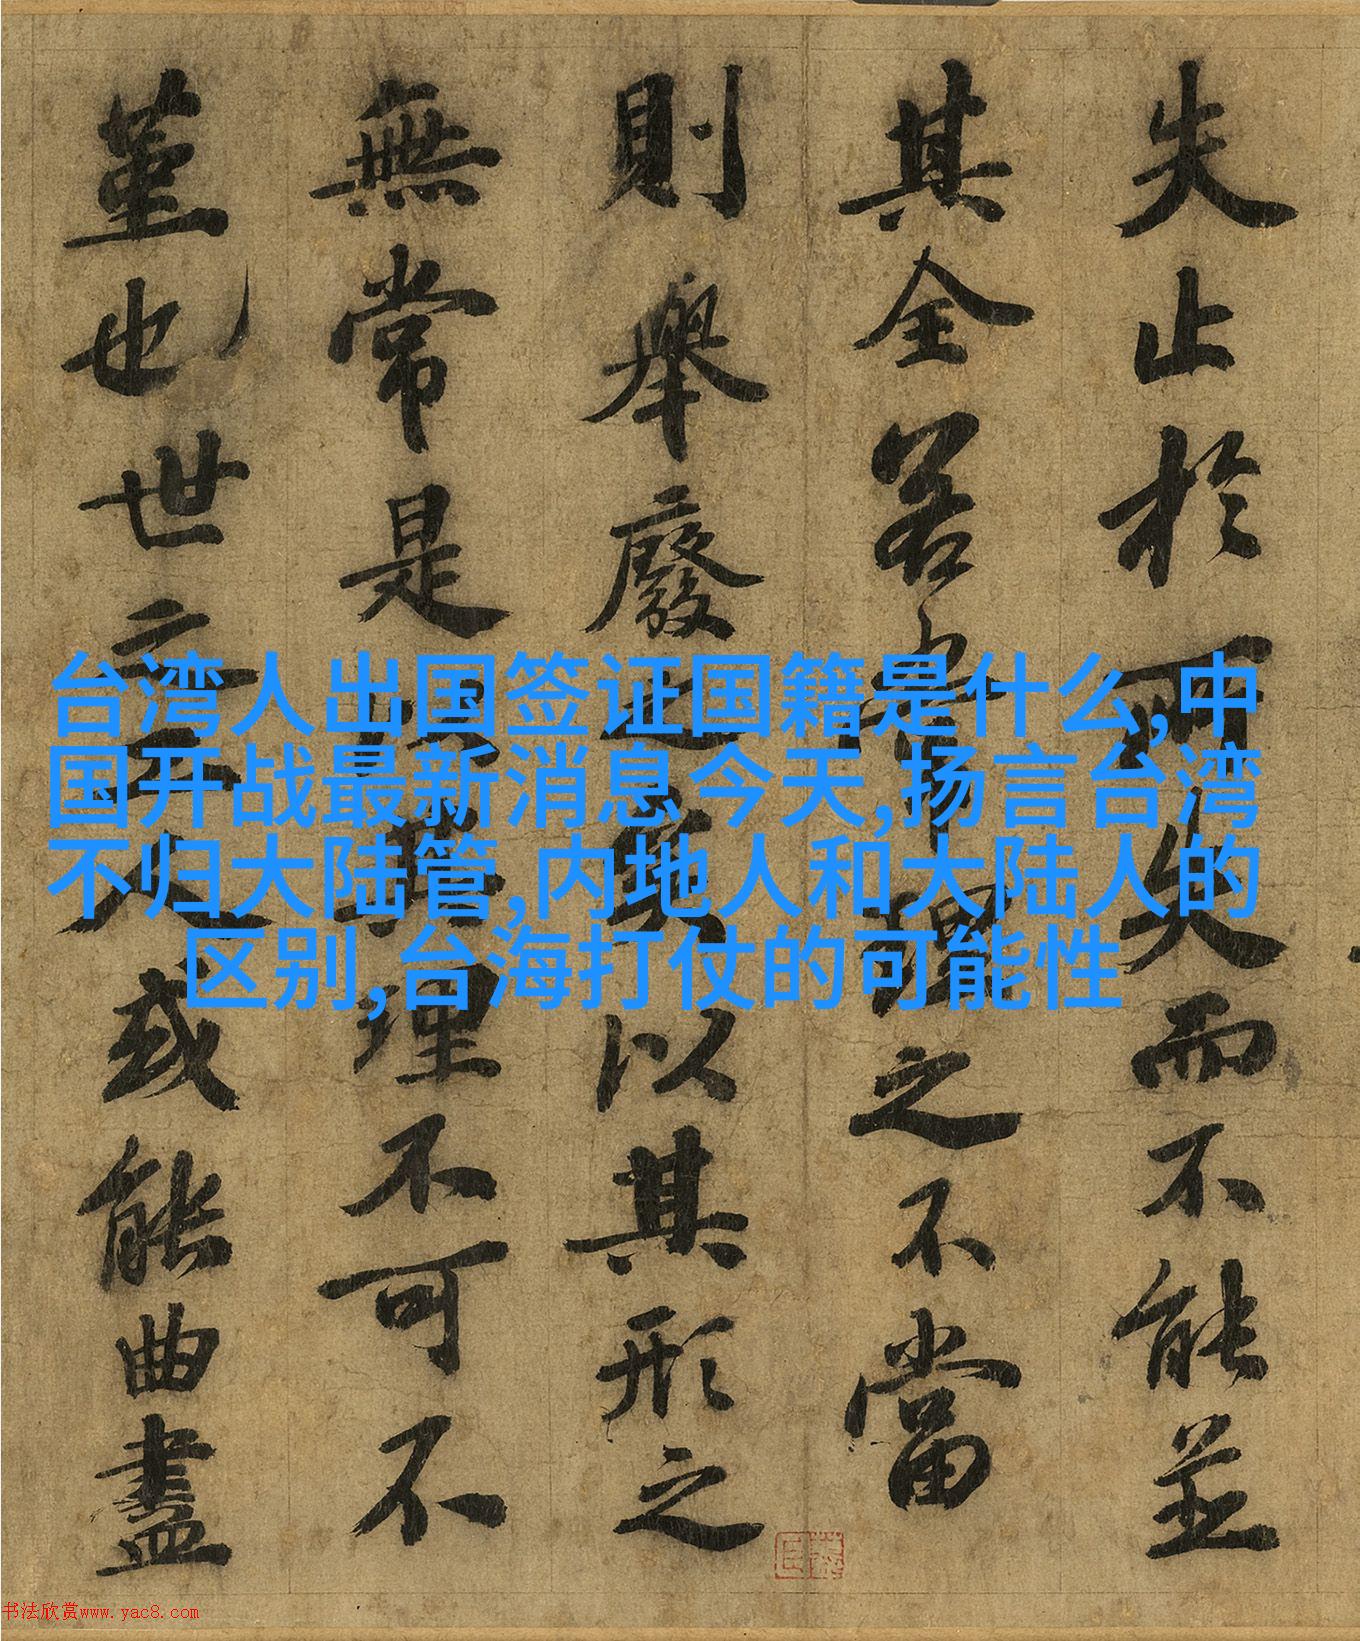 失止於所失而不能並
其全若常理之不當
則舉廢之矣以其形之
無常是以其理不可不
堇也世之工人或能曲盡
台湾人出国签证国籍是什么,中
国开战最新消息今天,扬言台湾
不归大陆管,内地人和大陆人的
区别,台海打仗的可能性
书法欣赏www.yac8.com